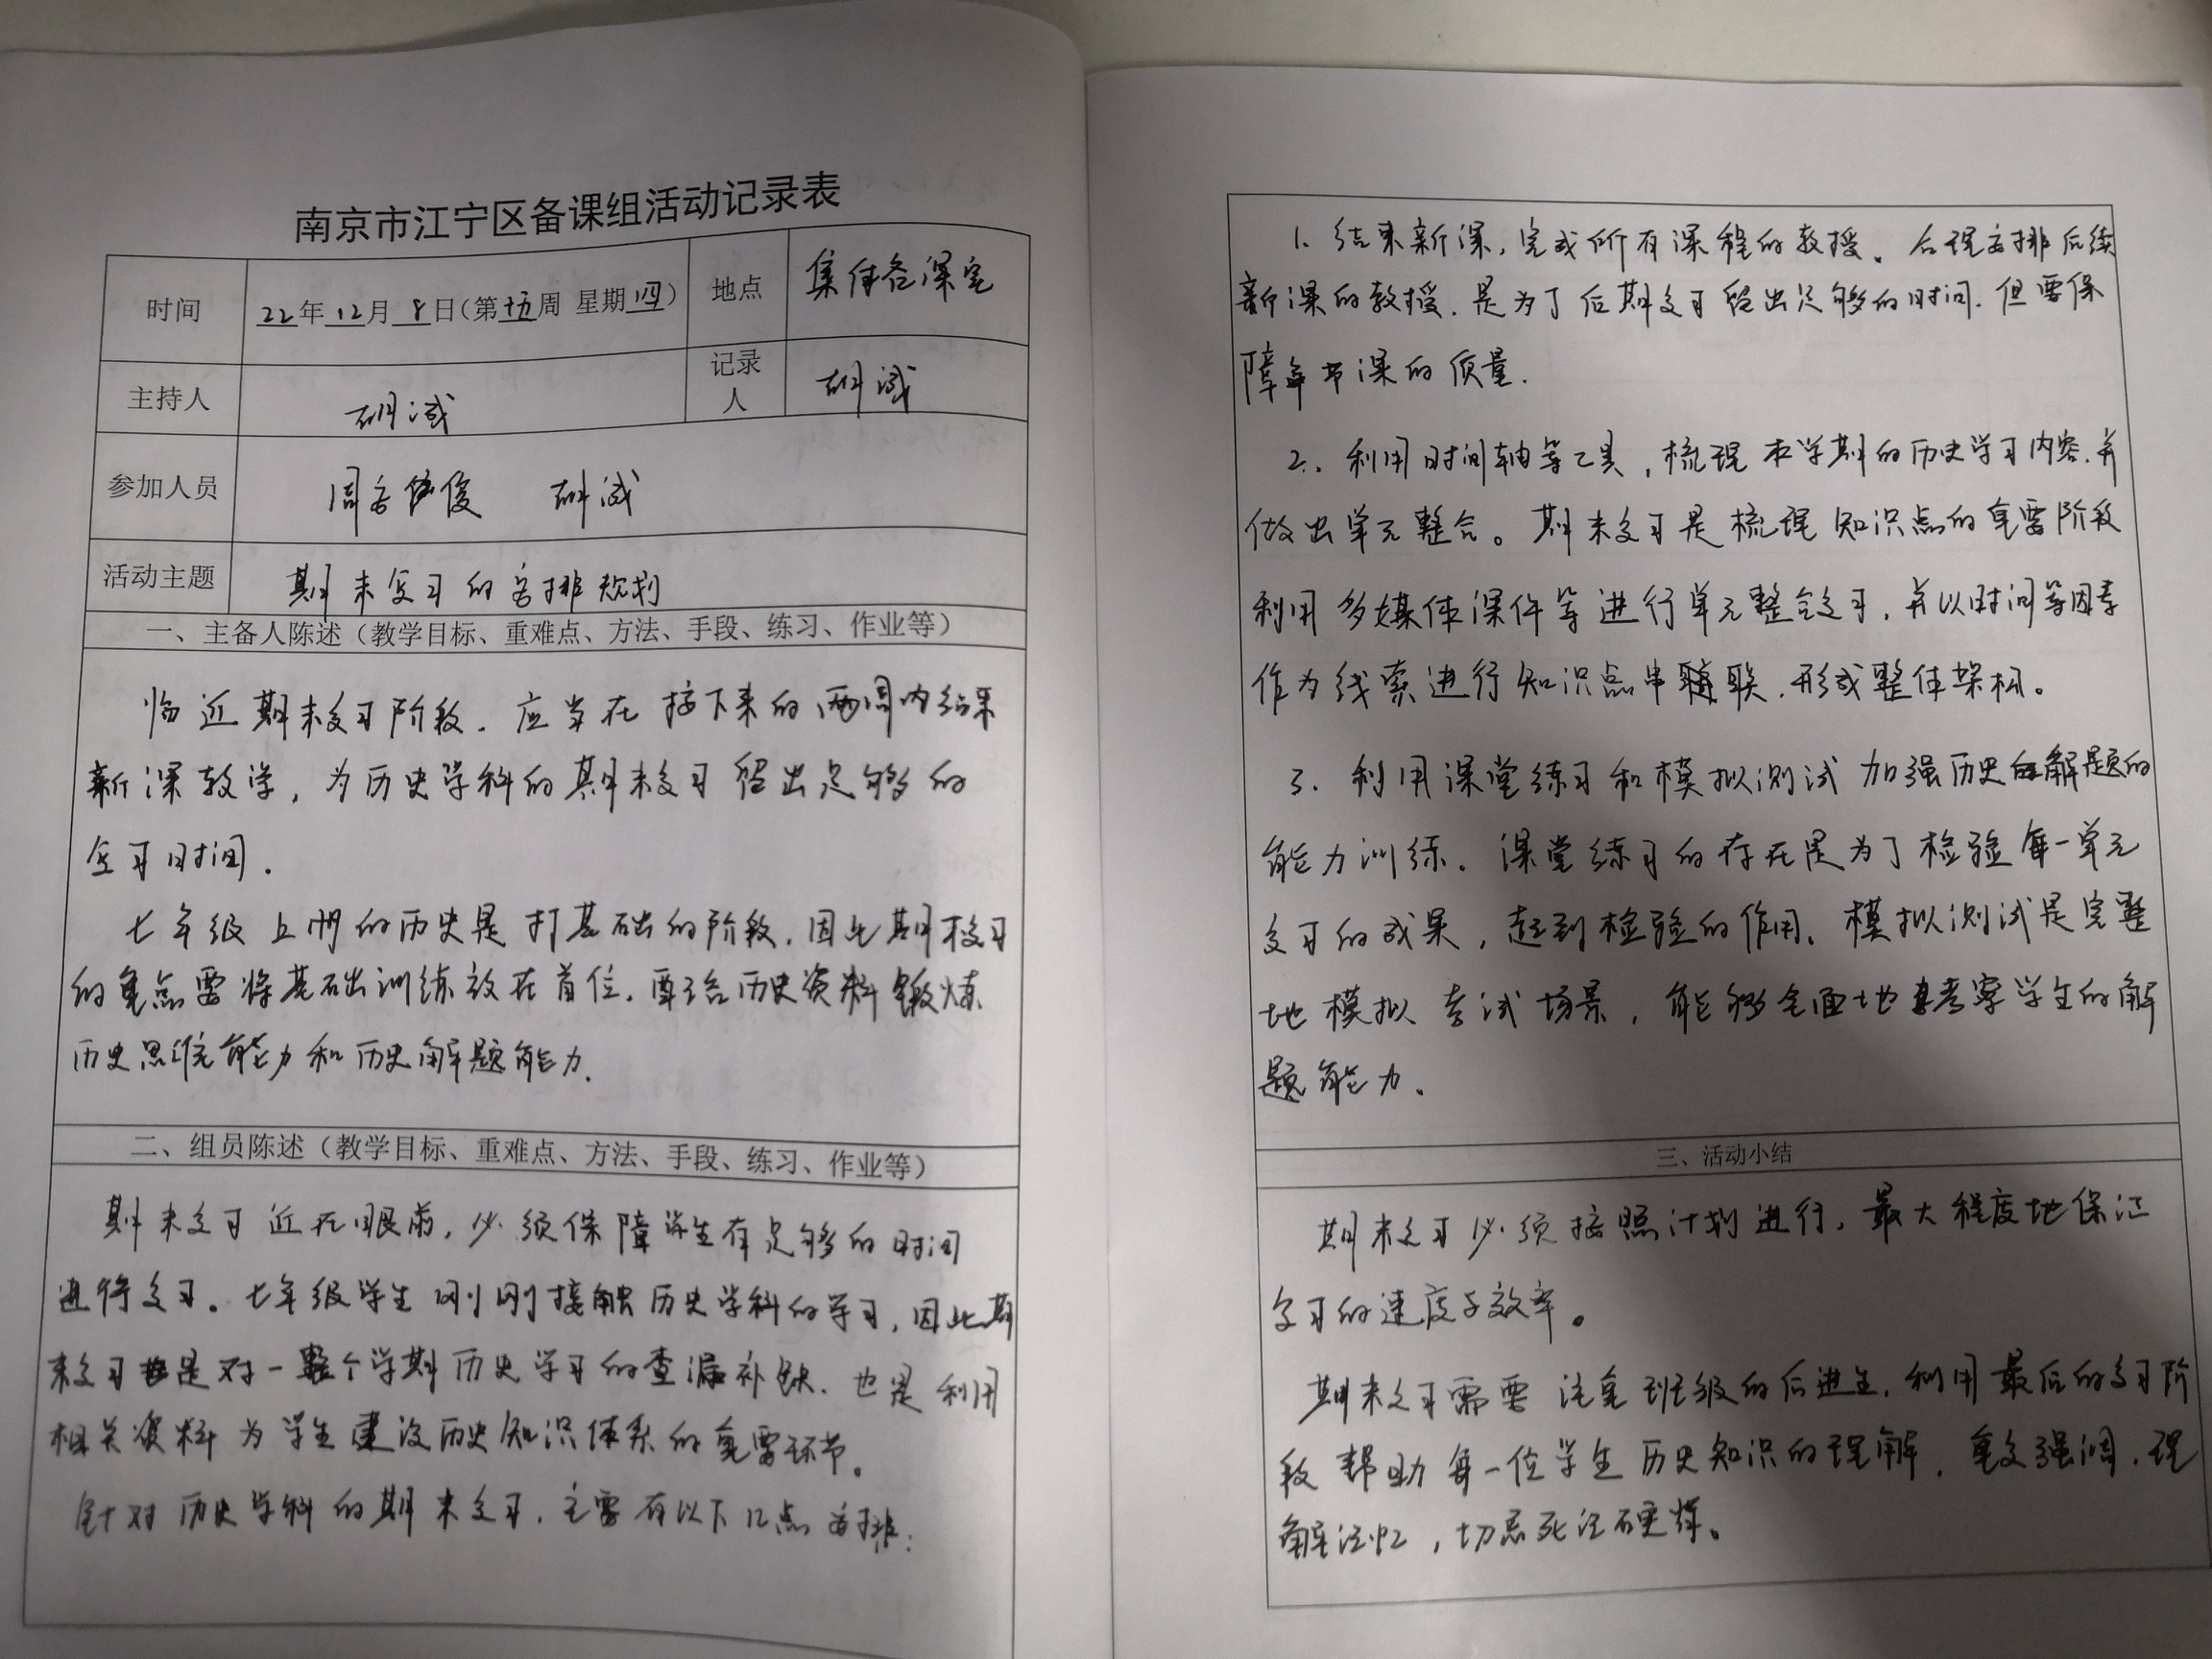 南京市江宁区备课组活动记录表
时间 22年12月8日(第十五周 星期四) 地点 集体备课室
主持人 胡诚 记录人 胡诚
参加人员 周 俊 胡诚
活动主题 期末复习的安排规划
一、主备人陈述（教学目标、重难点、方法、手段、练习、作业等）
临近期末复习阶段.应当在接下来的两周内结束
新课教学,为历史学科的期末复习留出足够的
复习时间.
七年级上册的历史是打基础的阶段.因此期末复习
的重点要将基础训练放在首位.配合历史资料锻炼
历史思维能力和历史解题能力.
二、组员陈述（教学目标、重难点、方法、手段、练习、作业等）
期末复习近在眼前,必须保障学生有足够的时间
进行复习。七年级学生刚刚接触历史学科的学习,因此期
末复习是对一整个学期历史学习的查漏补缺.也是利用
相关资料为学生建设历史知识体系的重要环节。
针对历史学科的期末复习.主要有以下几点安排:
1、结束新课,完成所有课程的教授。合理安排后续
新课的教授.是为了后期复习留出足够的时间.但要保
障每节课的质量.
2.利用时间轴等工具,梳理本学期的历史学习内容.并
做出单元整合。期末复习是梳理知识点的重要阶段
利用多媒体课件等进行单元整合复习,并以时间等因素
作为线索进行知识点串联.形成整体架构。
3.利用课堂练习和模拟测试加强历史解题的
能力训练.课堂练习的存在是为了检验每一单元
复习的成果,起到检验的作用.模拟测试是完整
地模拟考试场景,能够全面地考察学生的解
题能力.
三、活动小结
期末复习必须按照计划进行,最大程度地保证
复习的速度与效率。
期末复习需要注重班级的后进生.利用最后的复习阶
段帮助每一位学生历史知识的理解.重复强调.理
解记忆,切忌死记硬背。